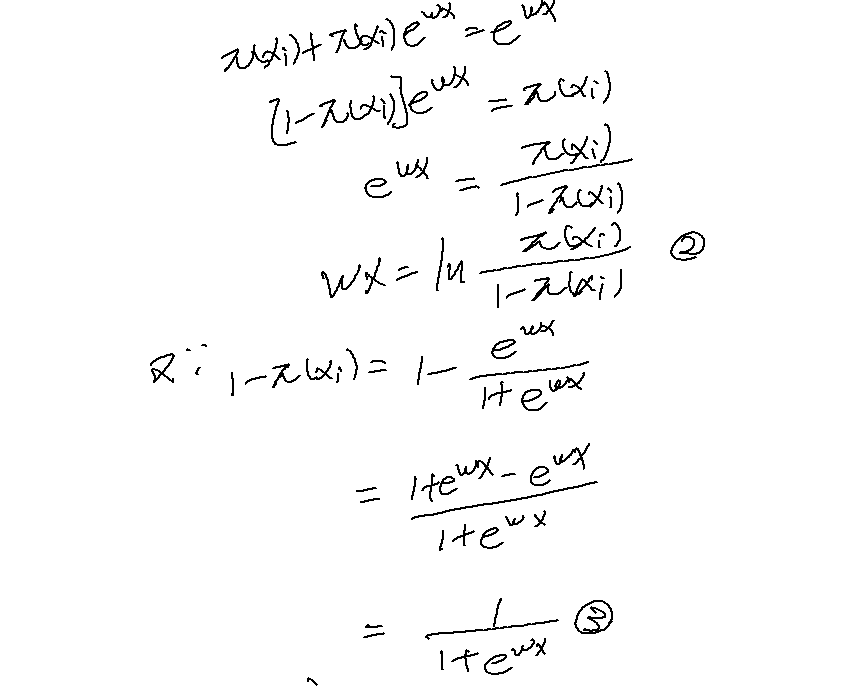 π(xᵢ)+π(xᵢ)e^{wx}=e^{wx}
[1-π(xᵢ)]e^{wx} = π(xᵢ)
e^{wx} = \frac{π(xᵢ)}{1-π(xᵢ)}
wx = ln \frac{π(xᵢ)}{1-π(xᵢ)} ②
又∵ 1-π(xᵢ) = 1- \frac{e^{wx}}{1+e^{wx}}
= \frac{1+e^{wx}-e^{wx}}{1+e^{wx}}
= \frac{1}{1+e^{wx}} ③